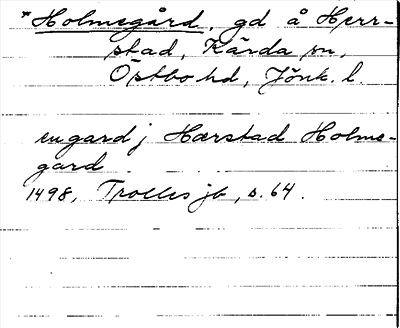 *Holmegård, gd å Herr-
stad, Kärda sn,
Östbo hd, Jönk. l.
en gard j Hærstad Holme-
gard
1498, Trolles jb, s. 64.